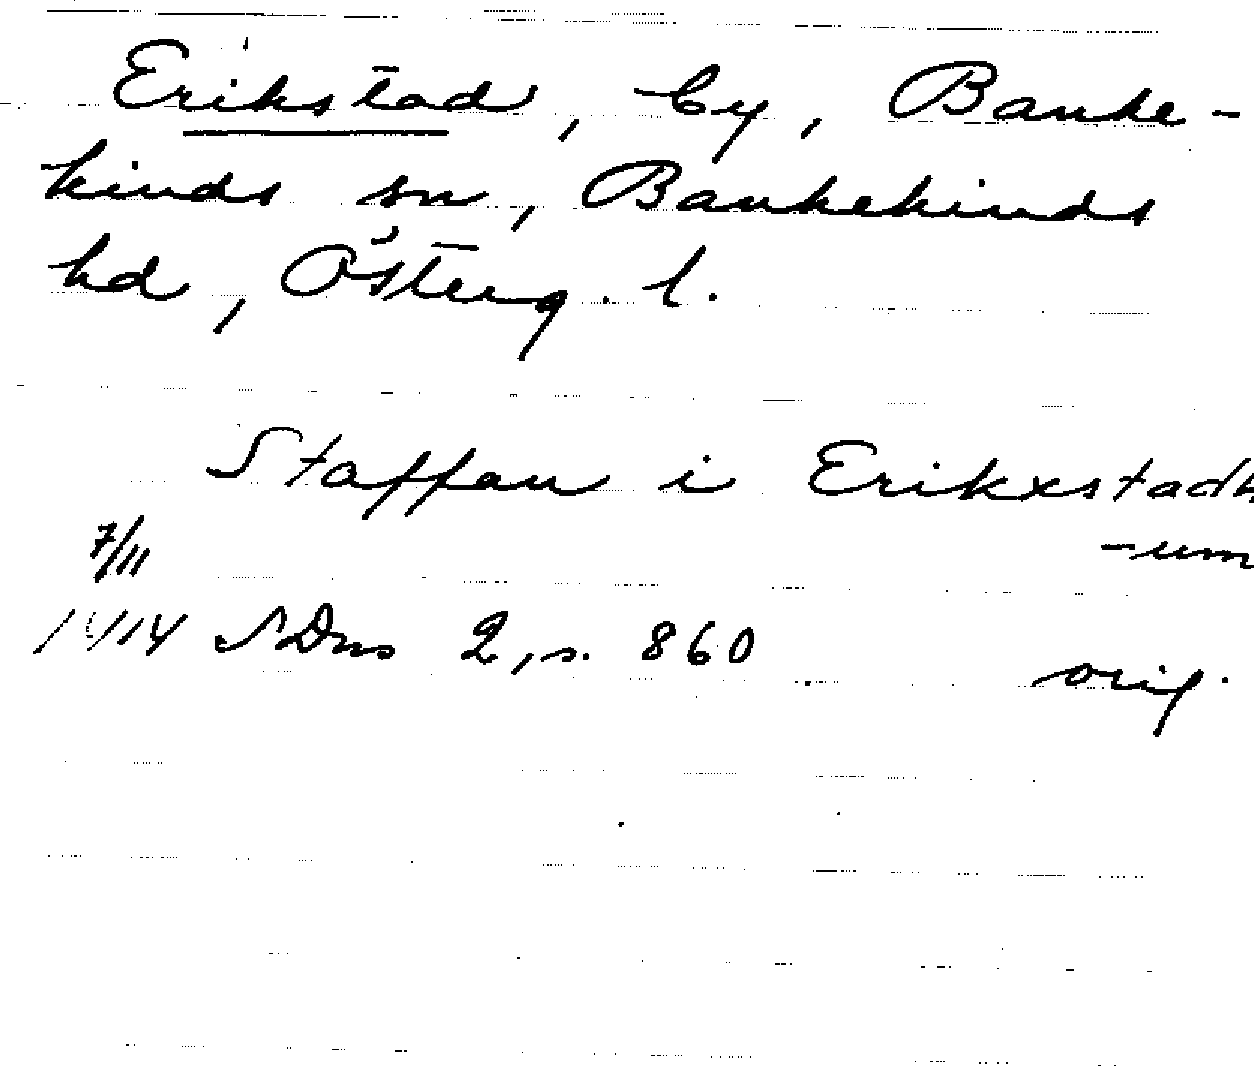 Erikstad, by, Banke-
kinds sn, Bankekinds
hd, Österg. l.
Staffan i Erikxstadh
-um
7/11
1414 SDns 2, s. 860
orig.